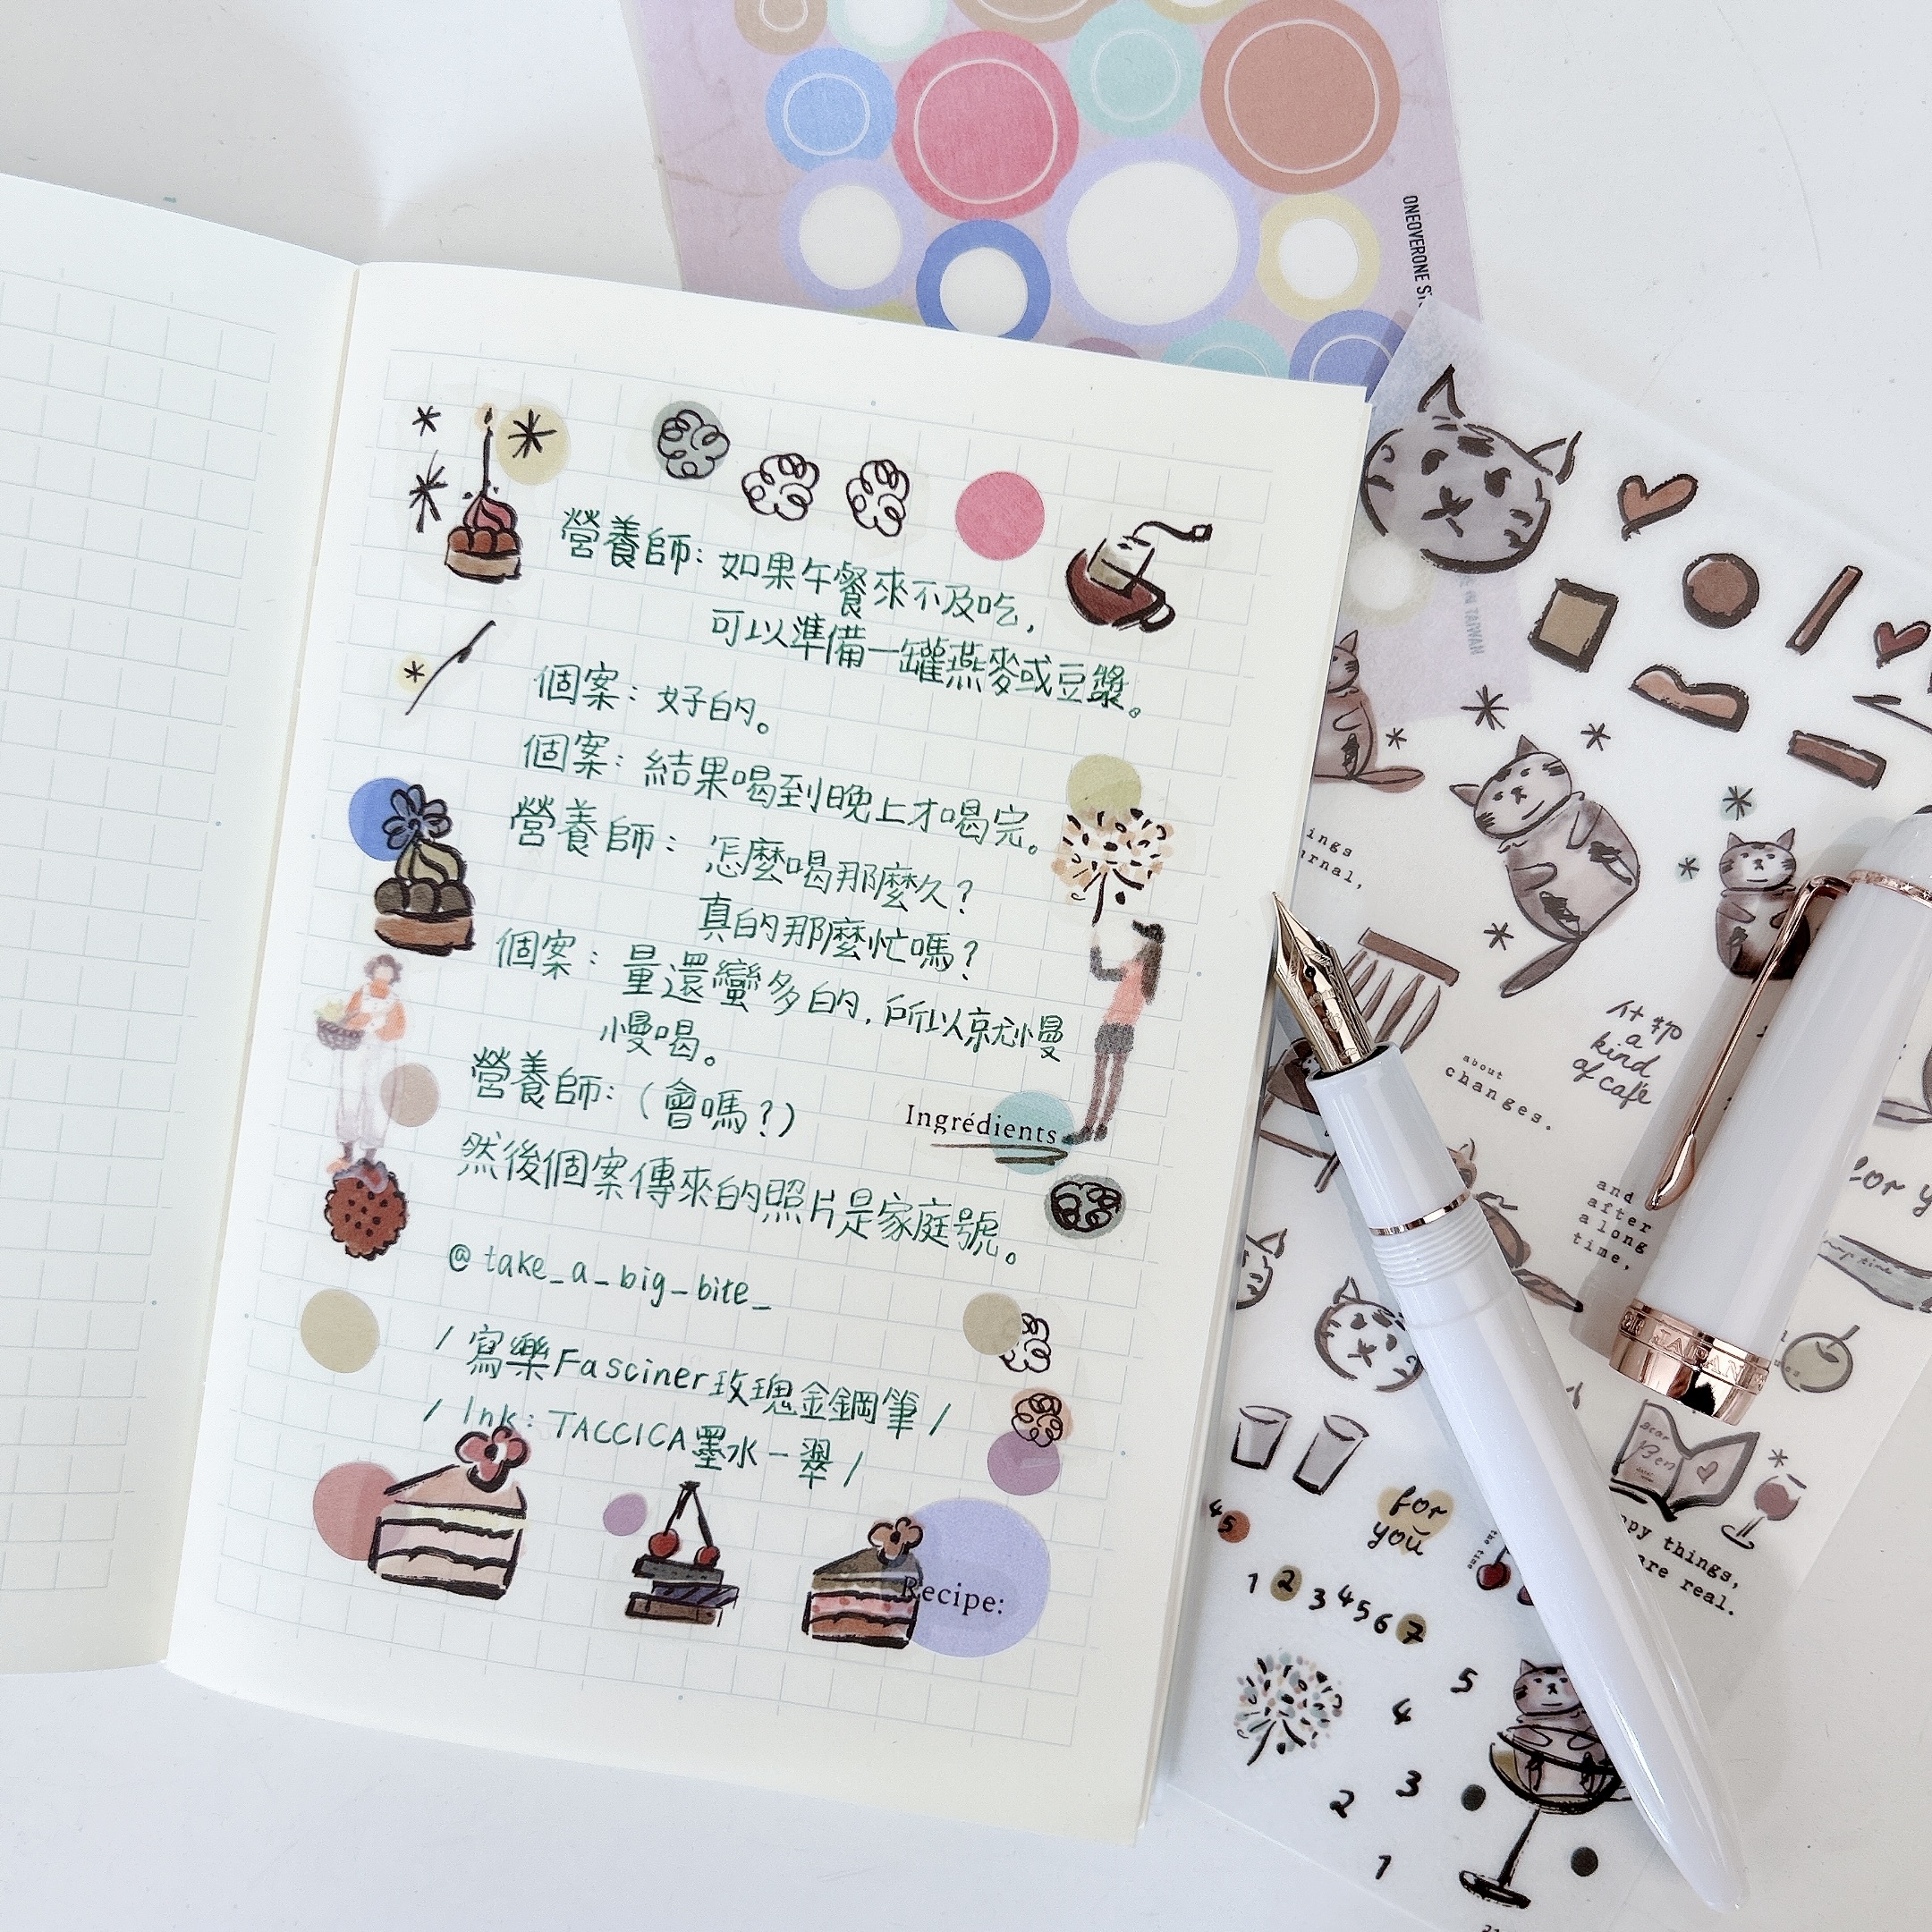 ONEOVERONE
營養師：如果午餐來不及吃，
可以準備一罐燕麥或豆漿。
個案：好的。
個案：結果喝到晚上才喝完。
營養師：怎麼喝那麼久？
真的那麼忙嗎？
個案：量還蠻多的，所以就慢
慢喝。
營養師：（會嗎？）
Ingrédients
然後個案傳來的照片是家庭號。
@take_a_big_bite_
/ 寫樂Fasciner玫瑰金鋼筆 /
/ Ink: TACCICA墨水－翠 /
Recipe:
TAIWAN
a
kind
of café
about
changes.
and
after
a long
time,
for
you
JAPAN
1 2 3 4 5 6 7
45
things,
are real.
5
4
3
2
1